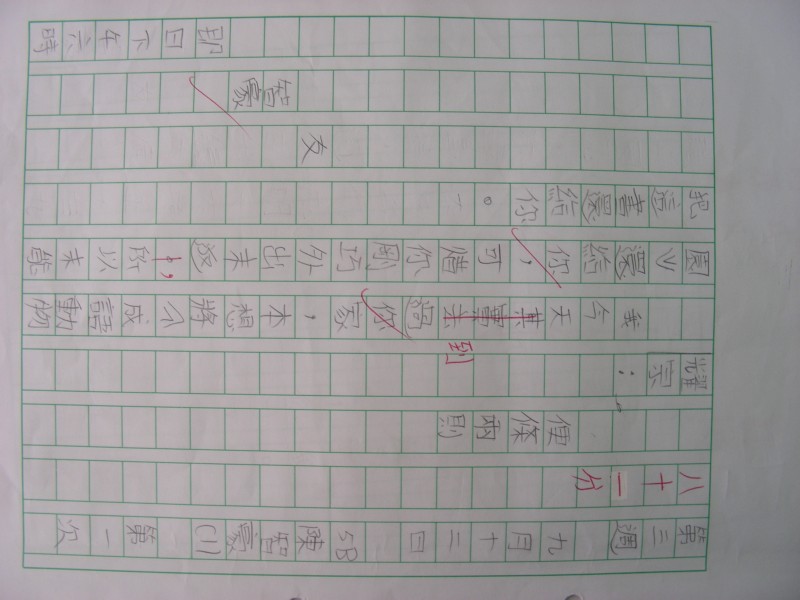 第三週 九月十二日 5B 陳智豪(1) 第一次
八十一分
便條兩則
耀宗：
我今天其實去過你家，本想將《成語動物
到
園》還給你，可惜你剛巧外出未返，所以未能
把這書還給你。
友
智豪
即日下午六時